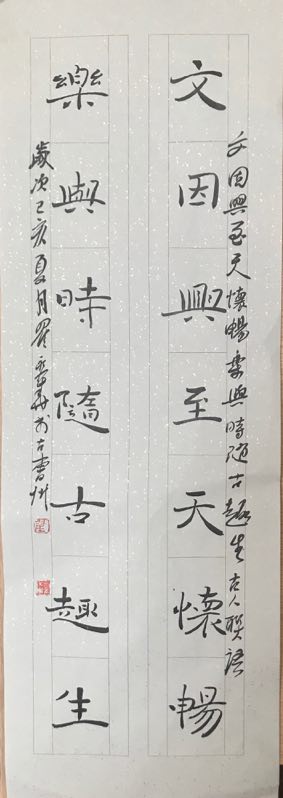 文因興至天懷暢
文因興至天懷暢樂與時隨古趣生古人聯語
樂與時隨古趣生
歲次己亥夏月翟秀華於古曹州